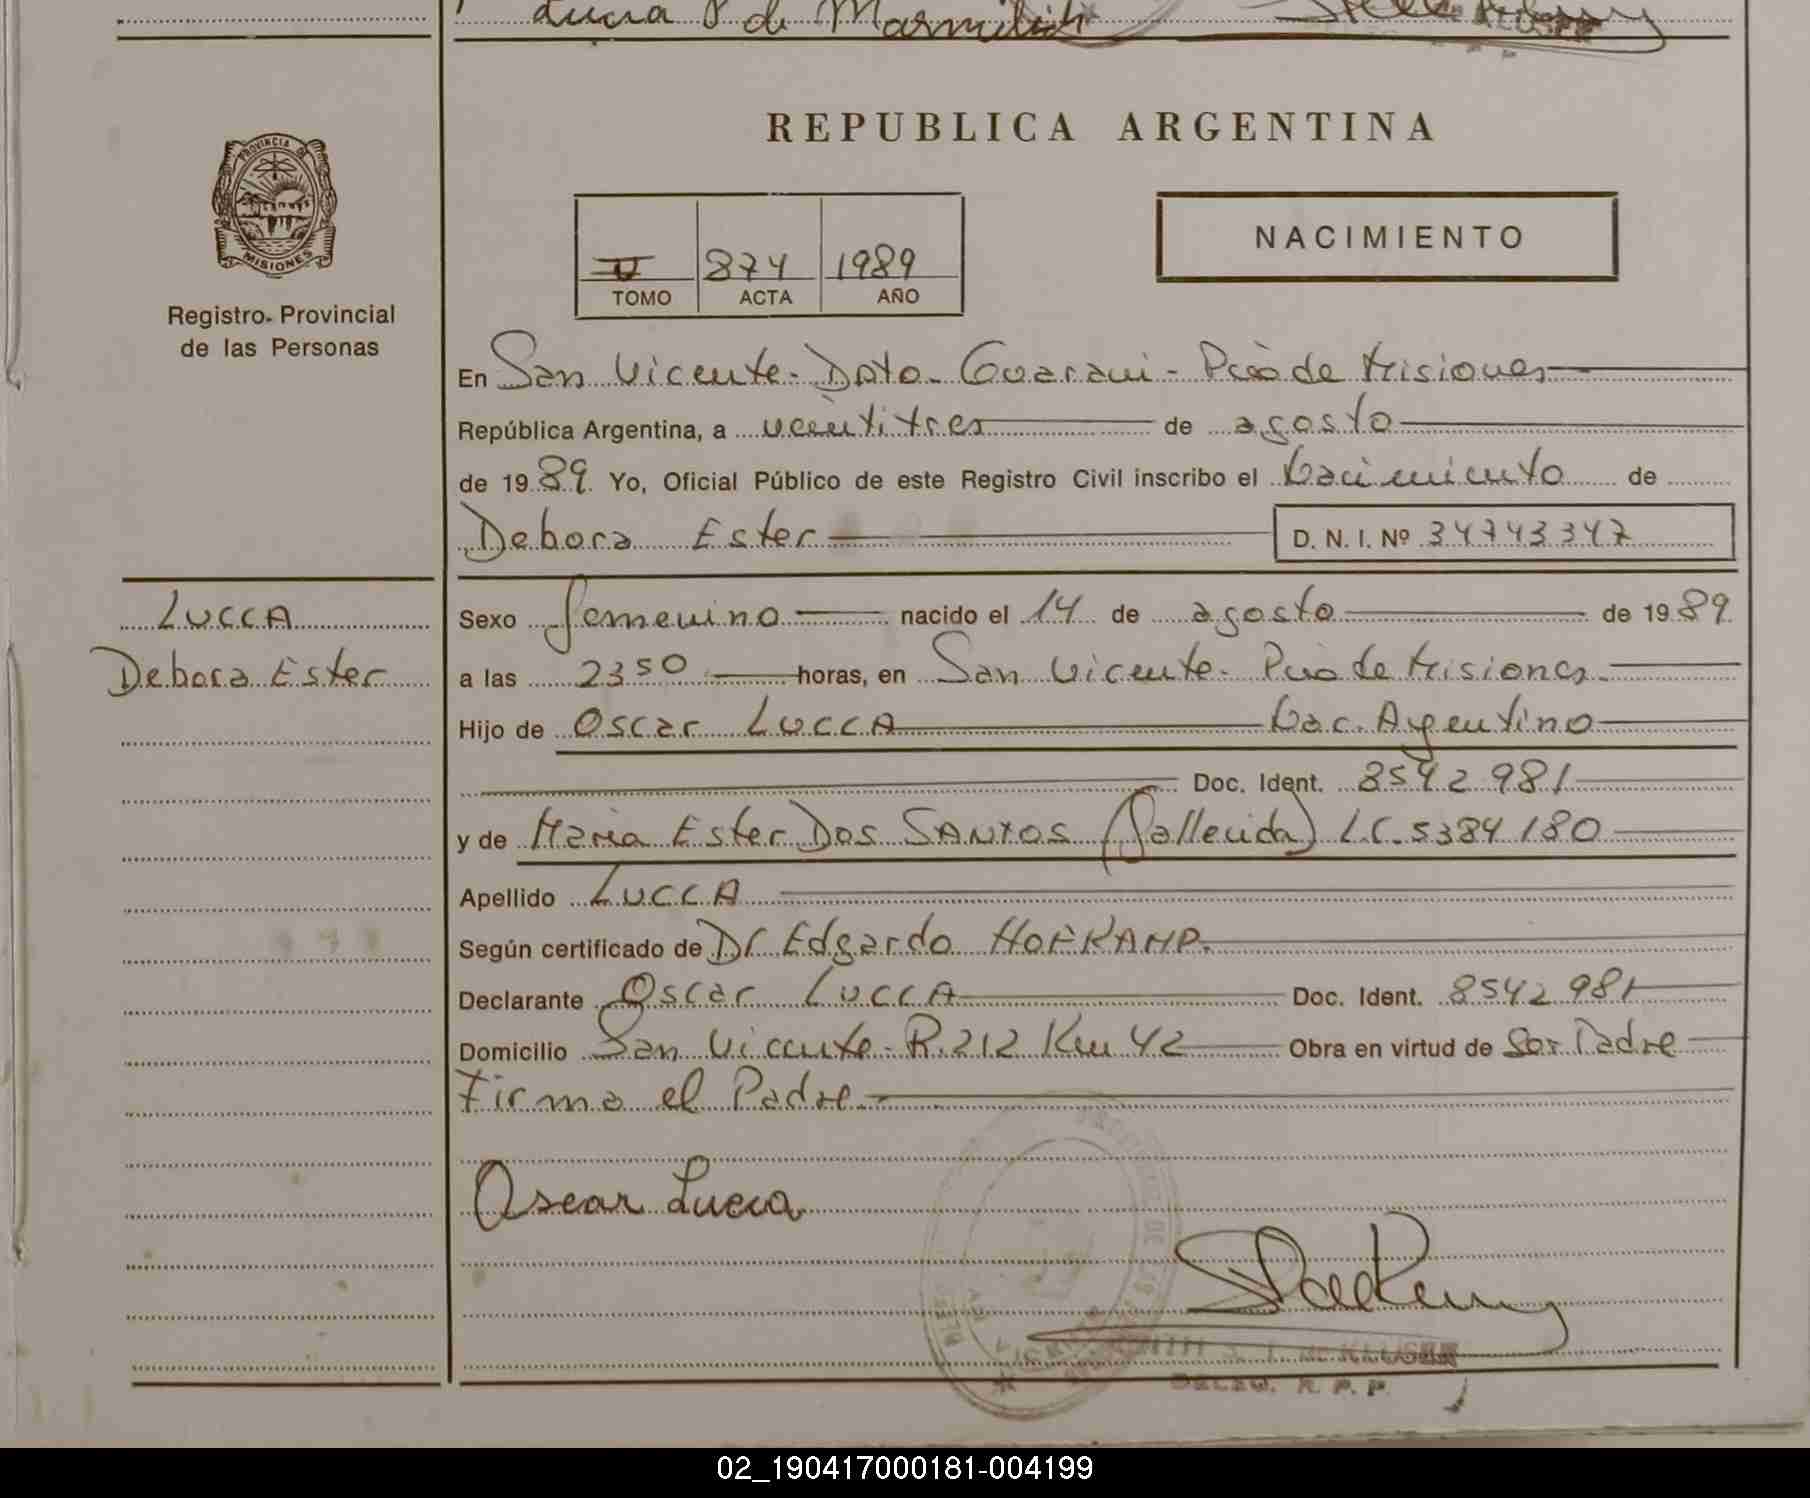 Lucia P de Marmilich
REPUBLICA ARGENTINA
PROVINCIA DE
MISIONES
Registro Provincial
de las Personas
II 874 1989
TOMO ACTA AÑO
NACIMIENTO
En San Vicente - Dpto. Guarani - Pcia de Misiones
República Argentina, a veintitres de agosto
de 1989. Yo, Oficial Público de este Registro Civil inscribo el nacimiento de
Debora Ester D. N. I. Nº 34743347
LUCCA
Debora Ester
Sexo femenino nacido el 14 de agosto de 1989
a las 2350 horas, en San Vicente - Pcia de Misiones.
Hijo de Oscar LUCCA Nac. Argentino
Doc. Ident. 8542981
y de Maria Ester DOS SANTOS (fallecida) L.C. 5384180
Apellido LUCCA
Según certificado de Dr Edgardo HOFKAMP.
Declarante Oscar LUCCA Doc. Ident. 8542981
Domicilio San Vicente - R. 212 Km 42 Obra en virtud de Ser Padre
Firma el Padre
Oscar Lucca
DELEG. R. P. P.
02_190417000181-004199